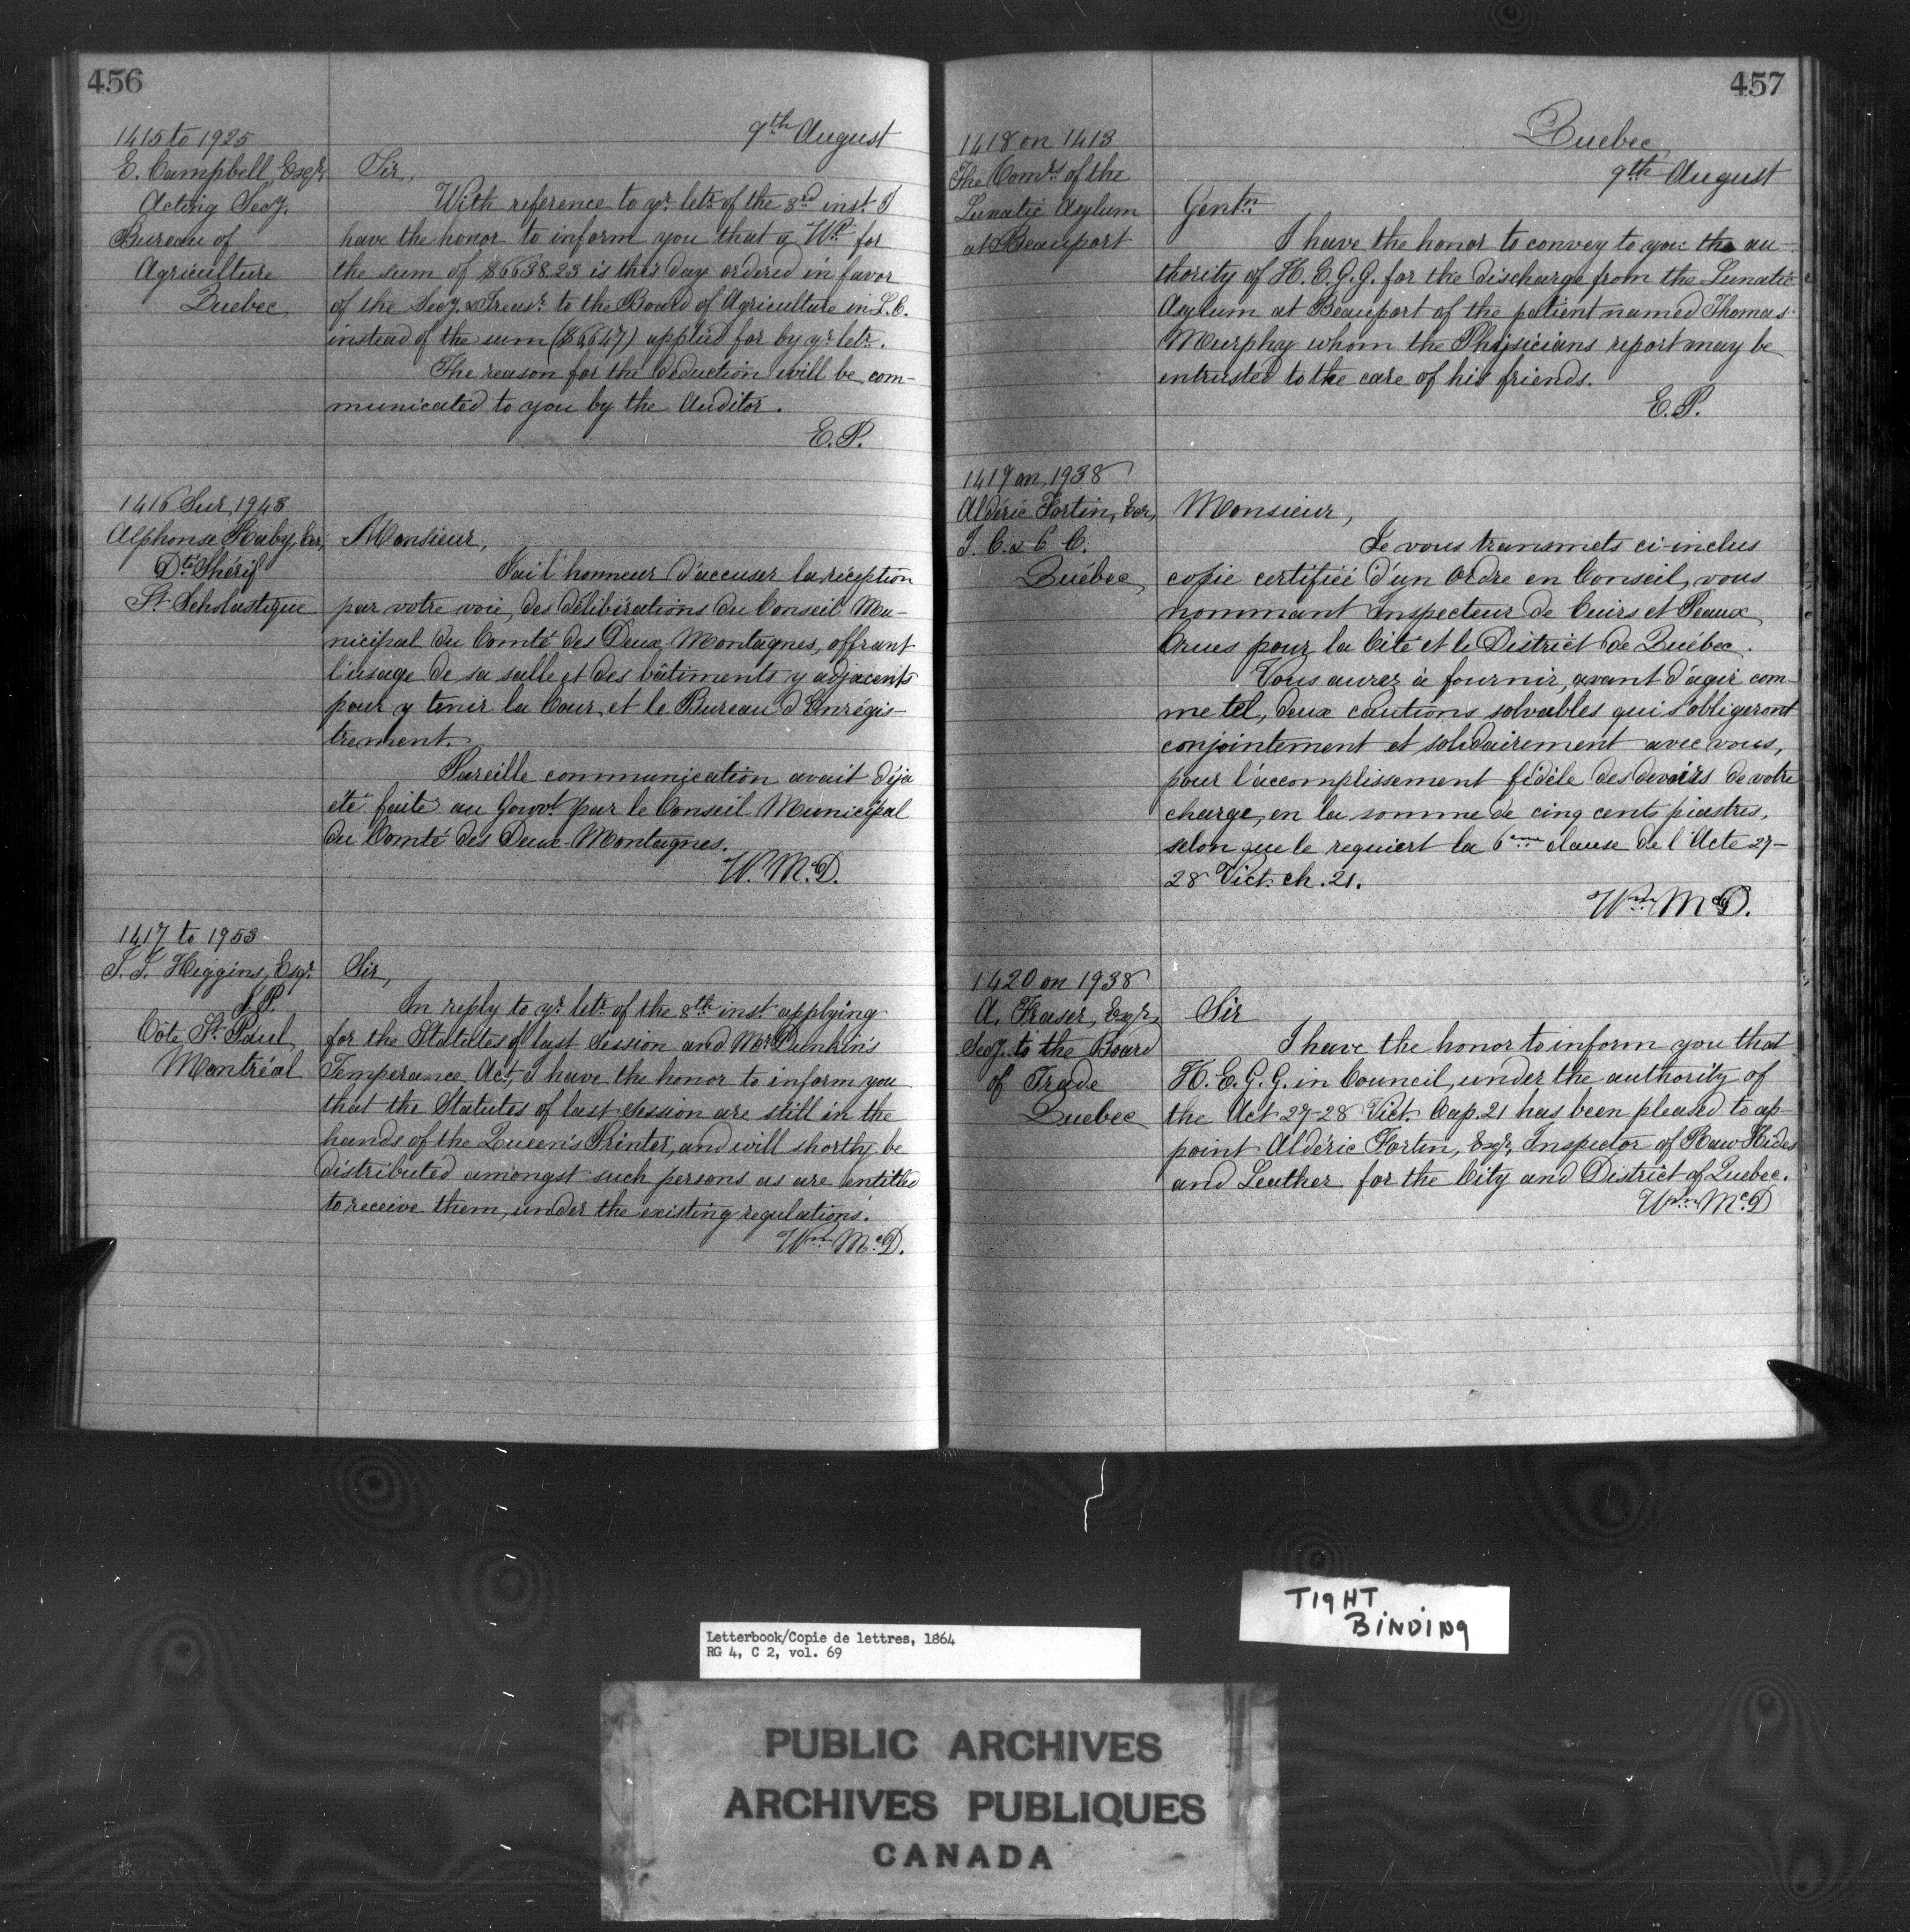 456
9th August
1415 to 1925
E. Campbell, Esqr.
Acting Secy.
Bureau of
Agriculture
Quebec
Sir,
With reference to yr. letr. of the 3rd inst. I
have the honor to inform you that a Wt. for
the sum of $6638.23 is this day ordered in favor
of the Secy. & Treasr. to the Board of Agriculture in L.C.
instead of the sum ($6,647) applied for by yr. letr.
The reason for the deduction will be com-
municated to you by the Auditor.
E.P.
1416 Sur 1943
Alphonse Raby, Ecr,
Dte. Shérif
St. Scholastique
Monsieur,
J'ai l'honneur d'accuser la réception
par votre voie, des délibérations du Conseil Mu-
nicipal du Comté des Deux Montagnes, offrant
l'usage de sa salle et des bâtiments y adjacents
pour y tenir la Cour et le Bureau d'Enrégis-
trement.
Pareille communication avait déja
été faite au Gouvt. par le Conseil Municipal
du Comté des Deux-Montagnes.
W. McD.
1417 to 1953
T. T. Higgins, Esqr.
J.P.
Côte St. Paul
Montréal
Sir,
In reply to yr. letr. of the 8th inst. applying
for the Statutes of last Session and Mr. Dunkin's
Temperance Act, I have the honor to inform you
that the Statutes of last Session are still in the
hands of the Queen's Printer, and will shorthy be
distributed amongst such persons as are entitled
to receive them, under the existing regulations.
Wm. McD.
457
Quebec
9th August
1418 on 1413
The Comrs. of the
Lunatic Asylum
at Beauport
Gentn.
I have the honor to convey to you the au-
thority of H.E.G.G. for the discharge from the Lunatic
Asylum at Beauport of the patient named Thomas
Murphy whom the Physicians report may be
entrusted to the care of his friends.
E.P.
1419 on 1938
Aldéric Fortin, Ecr,
I. C. & P. C.
Québec
Monsieur,
Je vous transmets ci-inclus
copie certifiée d'un Ordre en Conseil, vous
nommant Inspecteur de Cuirs et Peaux
Crues pour la Cité et le District de Québec.
Vous aurez à fournir, avant d'agir com-
me tel, deux cautions solvables qui s'obligeront
conjointement et solidairement avec vous,
pour l'accomplissement fidèle des devoirs de votre
charge, en la somme de cinq cents piastres,
selon que le requiert la 6eme clause de l'Acte 27-
28 Vict. ch. 21.
Wm. McD.
1420 on 1938
A. Fraser, Esqr.
Secy. to the Board
of Trade
Quebec
Sir
I have the honor to inform you that
H.E.G.G. in Council, under the authority of
the Act 27-28 Vict. Cap. 21 has been pleased to ap-
point Aldéric Fortin, Esqr, Inspector of Raw Hides
and Leather for the City and District of Quebec.
Wm. McD
TIGHT
BINDING
Letterbook/Copie de lettres, 1864
RG 4, C 2, vol. 69
PUBLIC ARCHIVES
ARCHIVES PUBLIQUES
CANADA